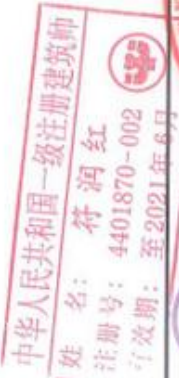 中华人民共和国一级注册建筑师
姓 名： 符润红
注册号： 4401870-002
有效期： 至2021年6月